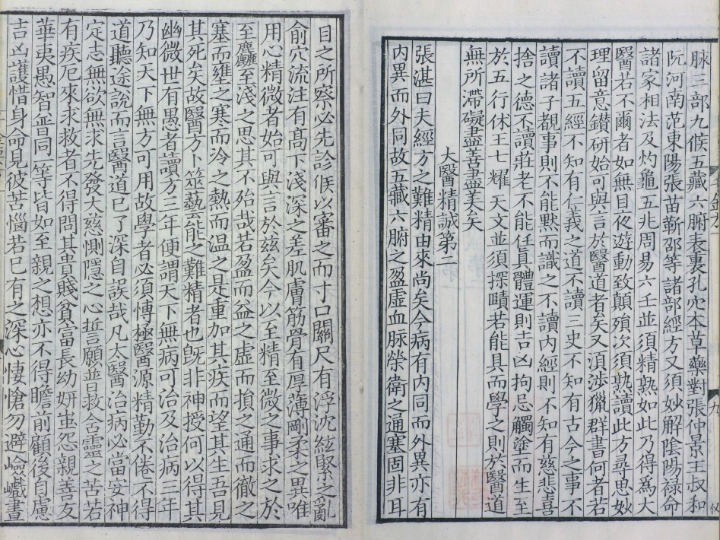 脉三部九候五藏六腑表裏孔穴本草藥對張仲景王叔和
阮河南范東陽張苗靳邵等諸部經方又須妙解陰陽祿命
諸家相法及灼龜五兆周易六壬並須精熟如此乃得爲大
醫若不爾者如無目夜遊動致顛殞次須熟讀此方尋思妙
理留意鑚研始可與言於醫道者矣又湏涉獵群書何者若
不讀五經不知有仁義之道不讀三史不知有古今之事不
讀諸子覩事則不能默而識之不讀内經則不知有慈悲喜
捨之德不讀莊老不能任真體運則吉凶拘忌觸塗而生至
於五行休王七耀天文並須探賾若能具而學之則於醫道
無所滯礙盡善盡美矣
大醫精誠第二
張湛曰夫經方之難精由來尚矣今病有内同而外異亦有
内異而外同故五藏六腑之盈虚血脉榮衛之通塞固非耳
目之所察必先診候以審之而寸口關尺有浮沈絃緊之亂
俞穴流注有髙下淺深之差肌膚筋骨有厚薄剛柔之異唯
用心精微者始可與言於兹矣今以至精至微之事求之於
至麤至淺之思其不殆哉若盈而益之虚而損之通而徹之
塞而壅之寒而冷之熱而温之是重加其疾而望其生吾見
其死矣故醫方卜筮藝能之難精者也旣非神授何以得其
幽微世有愚者讀方三年便謂天下無病可治及治病三年
乃知天下無方可用故學者必須愽極醫源精勤不倦不得
道聽途說而言醫道已了深自誤哉凡太醫治病必當安神
定志無欲無求先發大慈惻隱之心誓願普救含靈之苦若
有疾厄來求救者不得問其貴賤貧富長幼妍蚩怨親善友
華夷愚智普同一等皆如至親之想亦不得瞻前顧後自慮
吉凶護惜身命見彼苦惱若己有之深心悽愴勿避嶮巇晝